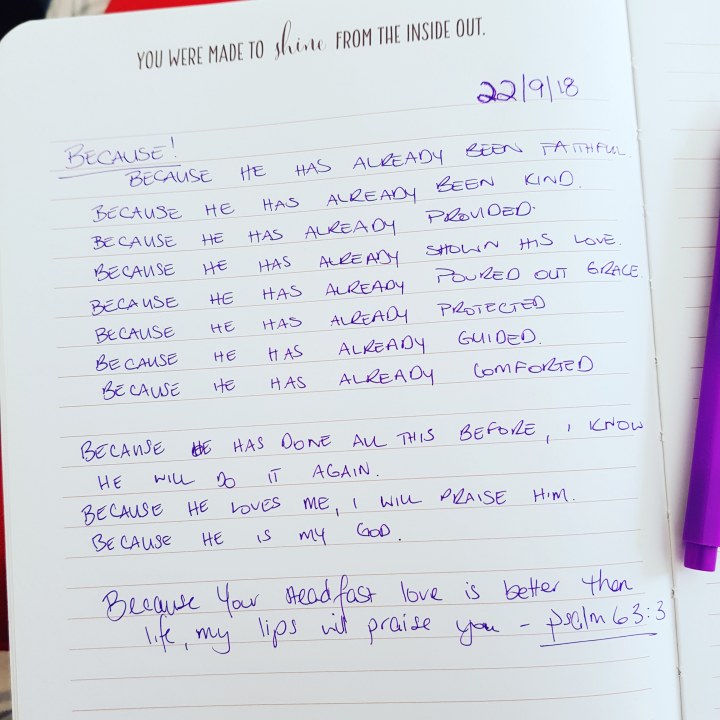 YOU WERE MADE TO shine FROM THE INSIDE OUT.
22/9/18
BECAUSE!
BECAUSE HE HAS ALREADY BEEN FAITHFUL.
BECAUSE HE HAS ALREADY BEEN KIND.
BECAUSE HE HAS ALREADY PROVIDED.
BECAUSE HE HAS ALREADY SHOWN HIS LOVE.
BECAUSE HE HAS ALREADY POURED OUT GRACE
BECAUSE HE HAS ALREADY PROTECTED
BECAUSE HE HAS ALREADY GUIDED.
BECAUSE HE HAS ALREADY COMFORTED
BECAUSE HE HAS DONE ALL THIS BEFORE, I KNOW
HE WILL DO IT AGAIN.
BECAUSE HE LOVES ME, I WILL PRAISE HIM.
BECAUSE HE IS MY GOD.
Because Your steadfast love is better than
life, my lips will praise you - psalm 63:3